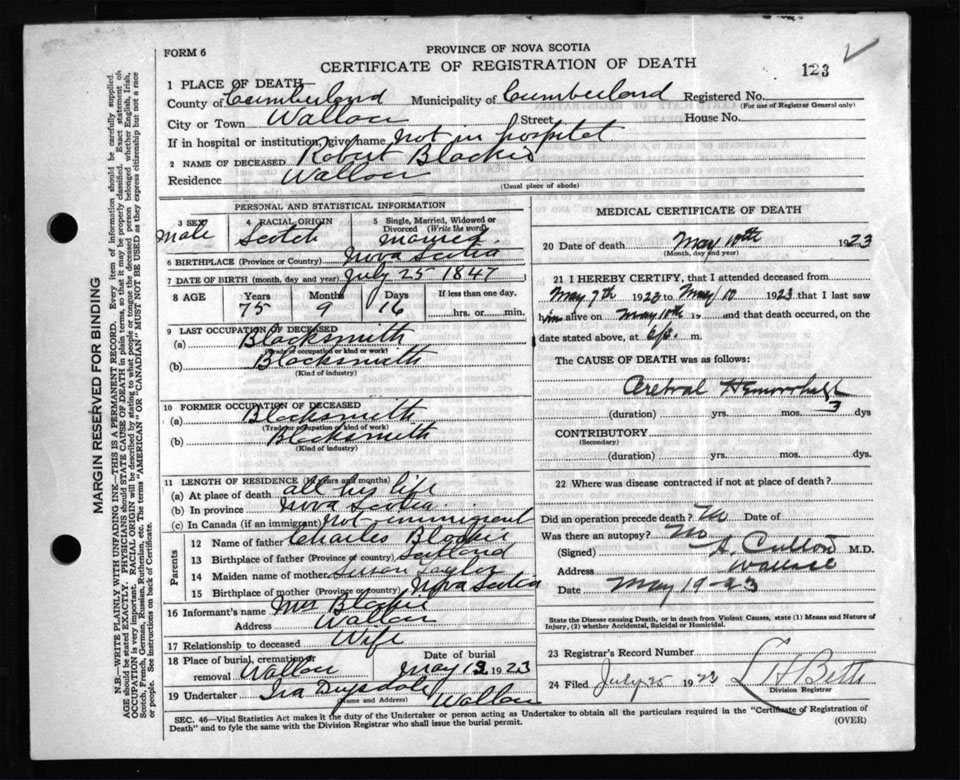 FORM 6
PROVINCE OF NOVA SCOTIA
CERTIFICATE OF REGISTRATION OF DEATH
123
1 PLACE OF DEATH
County of Cumberland Municipality of Cumberland Registered No.
(For use of Registrar General only)
City or Town Wallace Street House No.
If in hospital or institution, give name Not in hospital
2 NAME OF DECEASED Robert Blackie
Residence Wallace
(Usual place of abode)
PERSONAL AND STATISTICAL INFORMATION
3 SEX Male
4 RACIAL ORIGIN Scotch
5 Single, Married, Widowed or Divorced (Write the word) Married
6 BIRTHPLACE (Province or Country) Nova Scotia
7 DATE OF BIRTH (month, day and year) July 25 1847
8 AGE Years Months Days If less than one day.
75 9 16 hrs. or min.
9 LAST OCCUPATION OF DECEASED
(a) Blacksmith
(Trade or occupation or kind or work)
(b) Blacksmith
(Kind of industry)
10 FORMER OCCUPATION OF DECEASED
(a) Blacksmith
(Trade or occupation or kind of work)
(b) Blacksmith
(Kind of industry)
11 LENGTH OF RESIDENCE (in years and months)
(a) At place of death all his life
(b) In province Nova Scotia
(c) In Canada (if an immigrant) Not immigrant
Parents
12 Name of father Charles Blackie
13 Birthplace of father (Province or country) Scotland
14 Maiden name of mother Susan Taylor
15 Birthplace of mother (Province or country) Nova Scotia
16 Informant's name Mrs Blackie
Address Wallace
17 Relationship to deceased Wife
18 Place of burial, cremation or removal Wallace Date of burial May 12 1923
19 Undertaker Ira Drysdale Wallace
(Name and Address)
MEDICAL CERTIFICATE OF DEATH
20 Date of death May 10th 1923
(Month, day and year)
21 I HEREBY CERTIFY, that I attended deceased from
May 7th 1923 to May 10 1923 that I last saw
him alive on May 10th 19 and that death occurred, on
date stated above, at m.
The CAUSE OF DEATH was as follows:
Cerebral Hemorrhage
(duration) yrs. mos. 3 dys
CONTRIBUTORY
(Secondary)
(duration) yrs. mos. dys.
22 Where was disease contracted if not at place of death?
Did an operation precede death? No Date of
Was there an autopsy? No
(Signed) M.D.
Address Wallace
Date May 19-23
State the Disease causing Death, or in death from Violent Causes, state (1) Means and Nature of
Injury, (2) whether Accidental, Suicidal or Homicidal.
23 Registrar's Record Number
24 Filed July 25 1923 Betts
Division Registrar
SEC. 46—Vital Statistics Act makes it the duty of the Undertaker or person acting as Undertaker to obtain all the particulars required in the "Certificate of Registration of
Death" and to fyle the same with the Division Registrar who shall issue the burial permit.
(OVER)
MARGIN RESERVED FOR BINDING
N.B.—WRITE PLAINLY WITH UNFADING INK—THIS IS A PERMANENT RECORD. Every item of information should be carefully supplied.
AGE should be stated EXACTLY. PHYSICIANS should STATE CAUSE OF DEATH in plain terms, so that it may be properly classified. Exact statement of
OCCUPATION is very important. RACIAL ORIGIN will be described by stating to what people or tongue the deceased person belonged whether English, Irish,
Scotch, French, German, Russian, Ruthenian, etc. The terms "AMERICAN" OR "CANADIAN" MUST NOT BE USED as they express citizenship but not a race
or people. See instructions on back of Certificate.